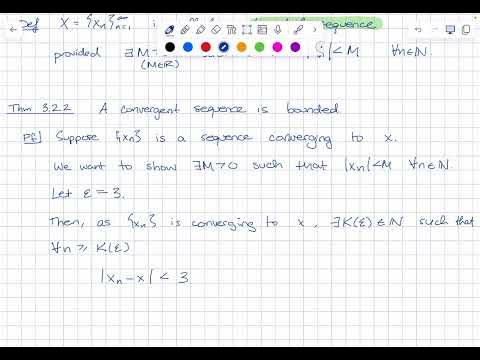 Def X = {xn}∞n=1 i sequence
provided ∃M |<M ∀n∈ℕ.
(M∈ℝ)
Thm 3.2.2 A convergent sequence is bounded
Pf] Suppose {xn} is a sequence converging to x.
We want to show ∃M>0 such that |xn|<M ∀n∈ℕ.
Let ε=3.
Then, as {xn} is converging to x, ∃K(ε)∈ℕ such that
∀n ≥ K(ε)
|xn-x| < 3